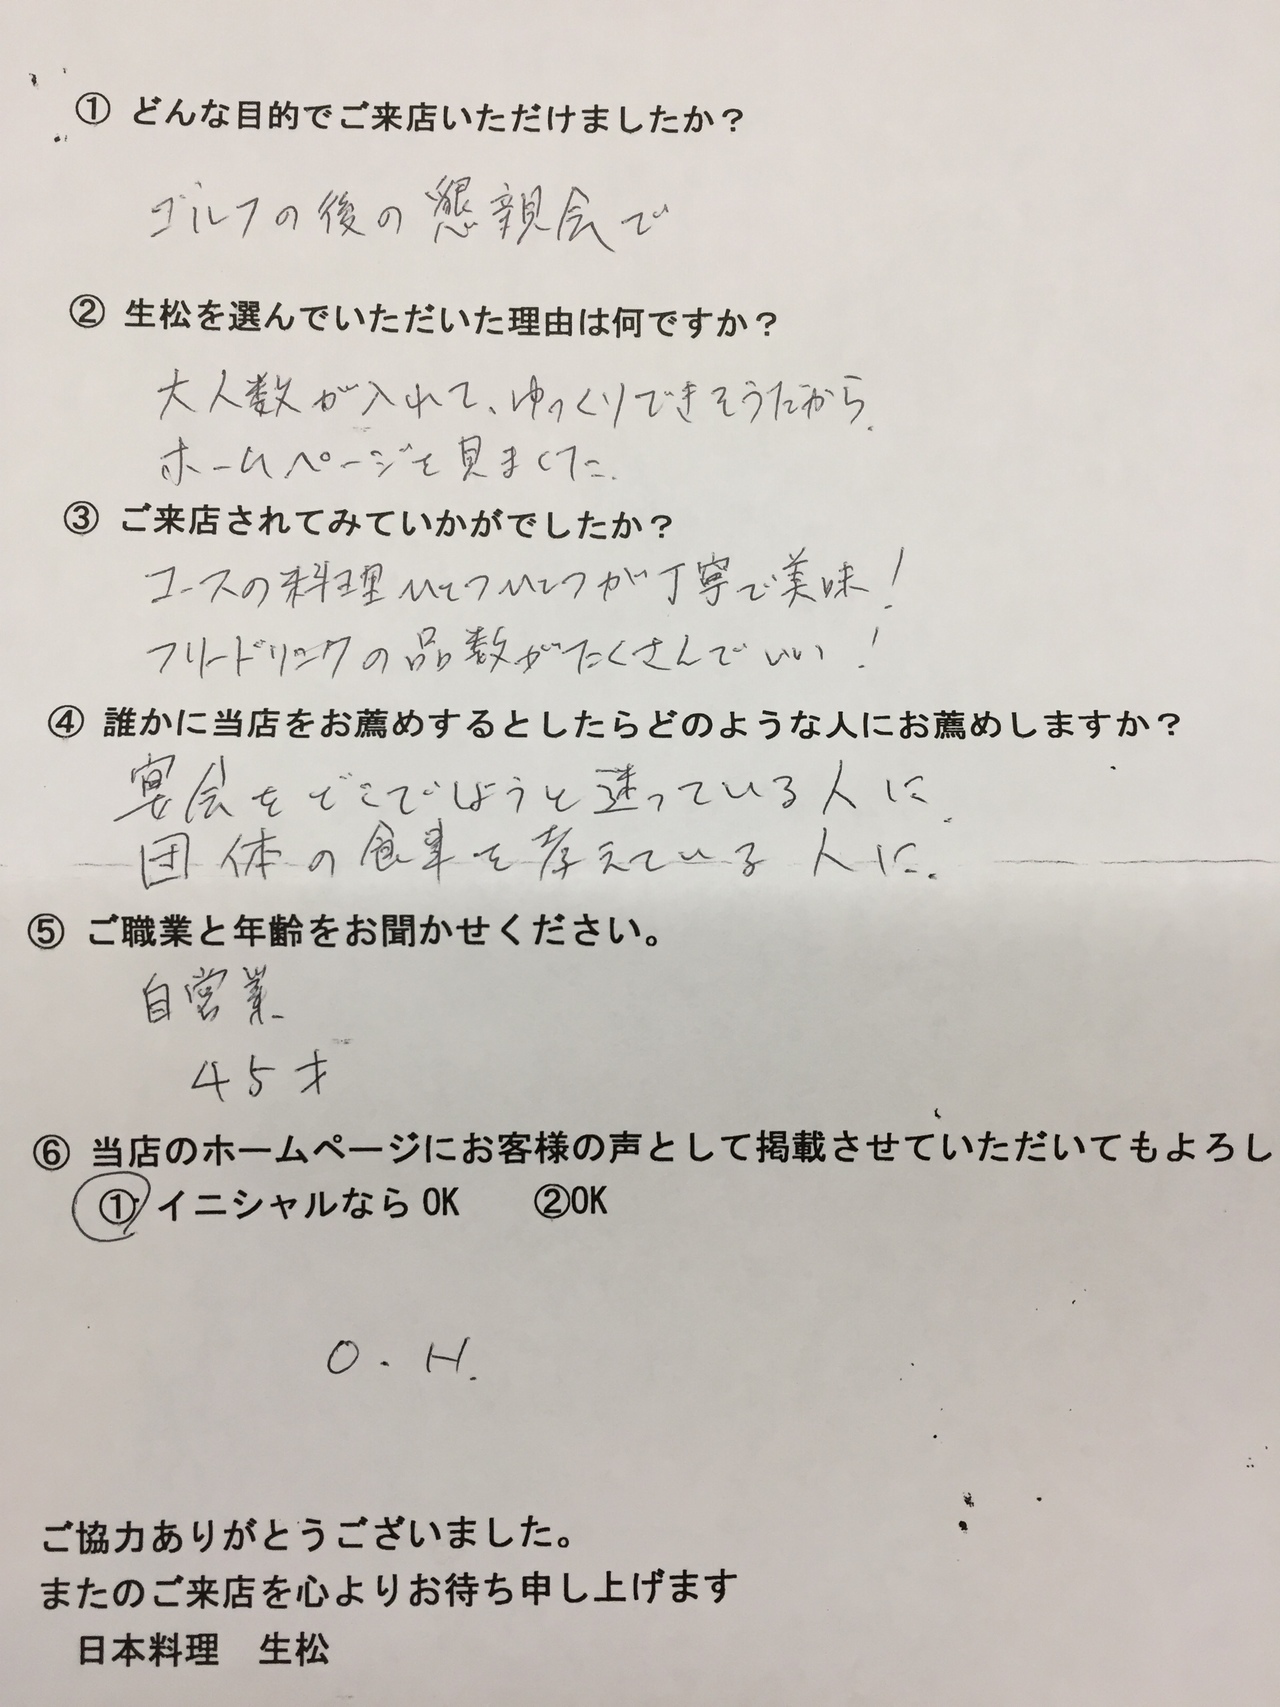 ① どんな目的でご来店いただけましたか？
ゴルフの後の懇親会で
② 生松を選んでいただいた理由は何ですか？
大人数が入れて、ゆっくりできそうだから。
ホームページを見ました。
③ ご来店されてみていかがでしたか？
コースの料理ひとつひとつが丁寧で美味！
フリードリンクの品数がたくさんでいい！
④ 誰かに当店をお薦めするとしたらどのような人にお薦めしますか？
宴会をどこでしようと迷っている人に。
団体の食事を考えている人に。
⑤ ご職業と年齢をお聞かせください。
自営業
45才
⑥ 当店のホームページにお客様の声として掲載させていただいてもよろし
① イニシャルなら OK ②OK
O.H.
ご協力ありがとうございました。
またのご来店を心よりお待ち申し上げます
日本料理 生松